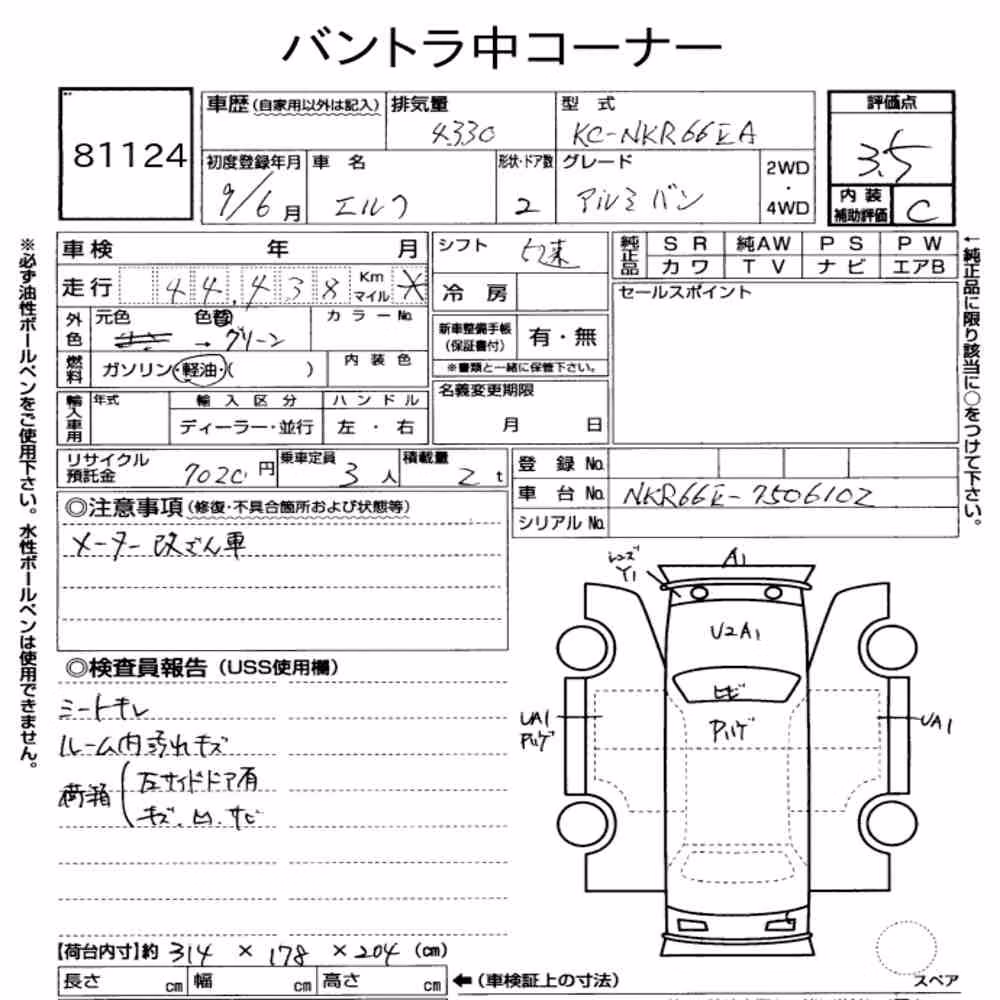 バントラ中コーナー
81124
車歴(自家用以外は記入) 排気量 4330
型式 KC-NKR66EA
評価点 3.5
内装補助評価 C
初度登録年月 9/6月
車名 エルフ
形状・ドア数 2
グレード アルミバン
2WD・4WD
※必ず油性ボールペンをご使用下さい。水性ボールペンは使用できません。
車検 年 月
走行 44,438 Km マイル *
外色 元色 色替 →グリーン
カラーNo.
燃料 ガソリン・軽油・( )
内装色
輸入車用 年式 輸入区分 ハンドル
ディーラー・並行 左・右
シフト 5速
冷房
新車整備手帳(保証書付) 有・無
※書類と一緒に保管下さい。
名義変更期限
月 日
純正品 SR 純AW PS PW
カワ TV ナビ エアB
セールスポイント
←純正品に限り該当に○をつけて下さい。
リサイクル預託金 7020円
乗車定員 3人
積載量 2t
登録No.
車台No. NKR66E-7506102
シリアルNo.
◎注意事項(修復・不具合箇所および状態等)
メーター改ざん車
◎検査員報告(USS使用欄)
シートキレ
ルーム内汚れキズ
荷箱 左サイドドア有
キズ、凹、サビ
レンズ
Y1
A1
U2A1
ヒビ
Pハゲ
UA1
Pハゲ
UA1
スペア
【荷台内寸】約 314 × 178 × 204 (cm)
長さ cm 幅 cm 高さ cm ←(車検証上の寸法)